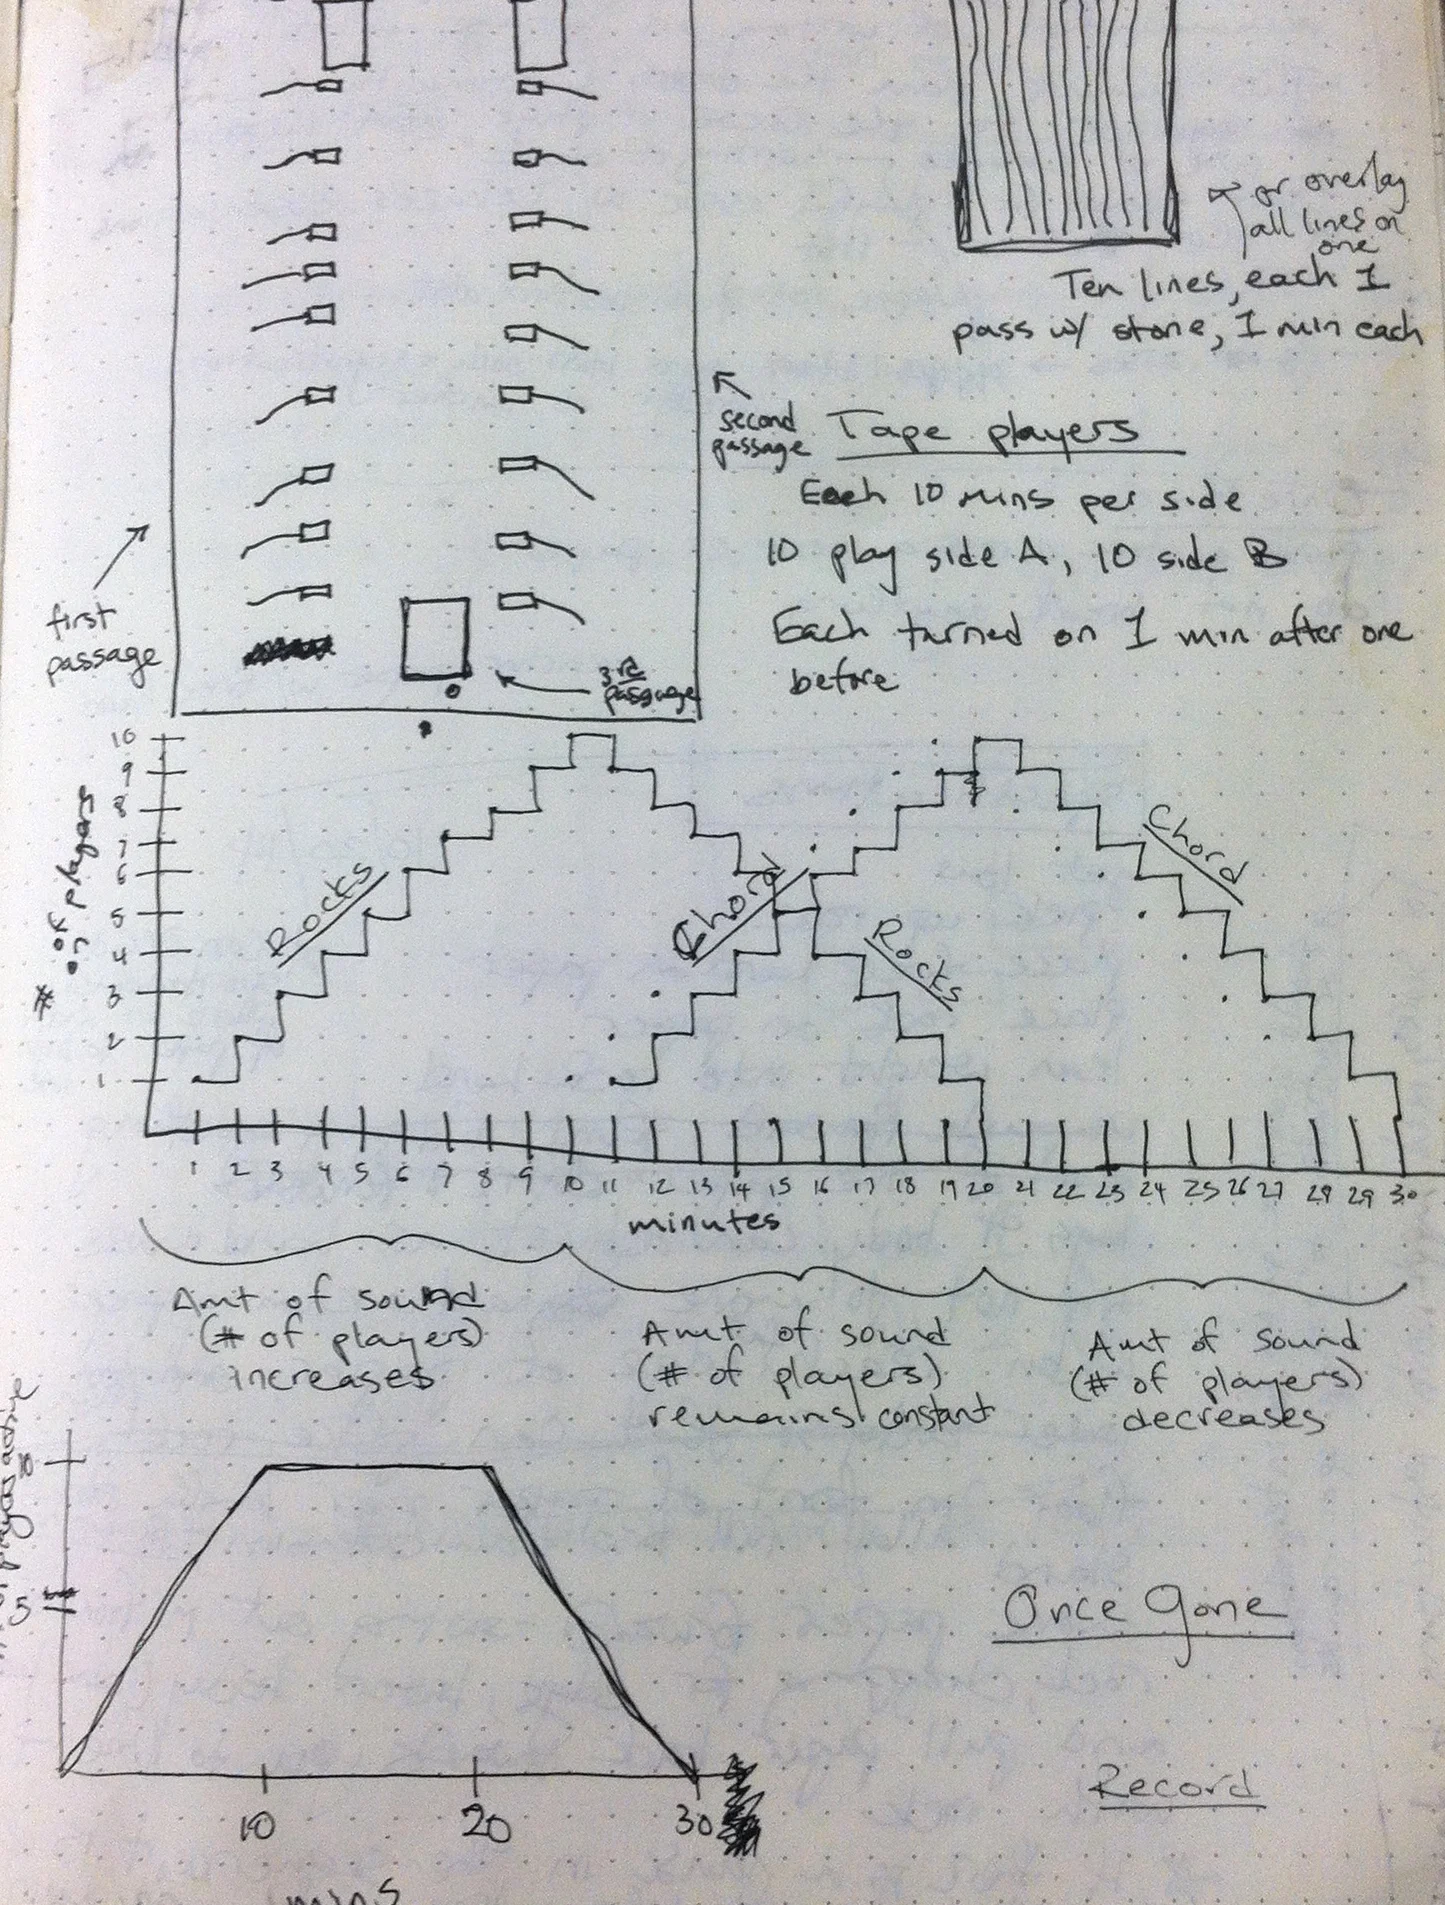 or overlay
all lines on
one
Ten lines, each 1
pass w/ stone, 1 min each
second
passage
Tape players
Each 10 mins per side
10 play side A, 10 side B
Each turned on 1 min after one
before
first
passage
3rd
passage
# of players
10
9
8
7
6
5
4
3
2
1
Rocks
Chord
Rocks
Chord
1 2 3 4 5 6 7 8 9 10 11 12 13 14 15 16 17 18 19 20 21 22 23 24 25 26 27 28 29 30
minutes
Amt of sound
(# of players)
increases
Amt of sound
(# of players)
remains constant
Amt of sound
(# of players)
decreases
players active
10
5
10 20 30
mins
Once Gone
Record